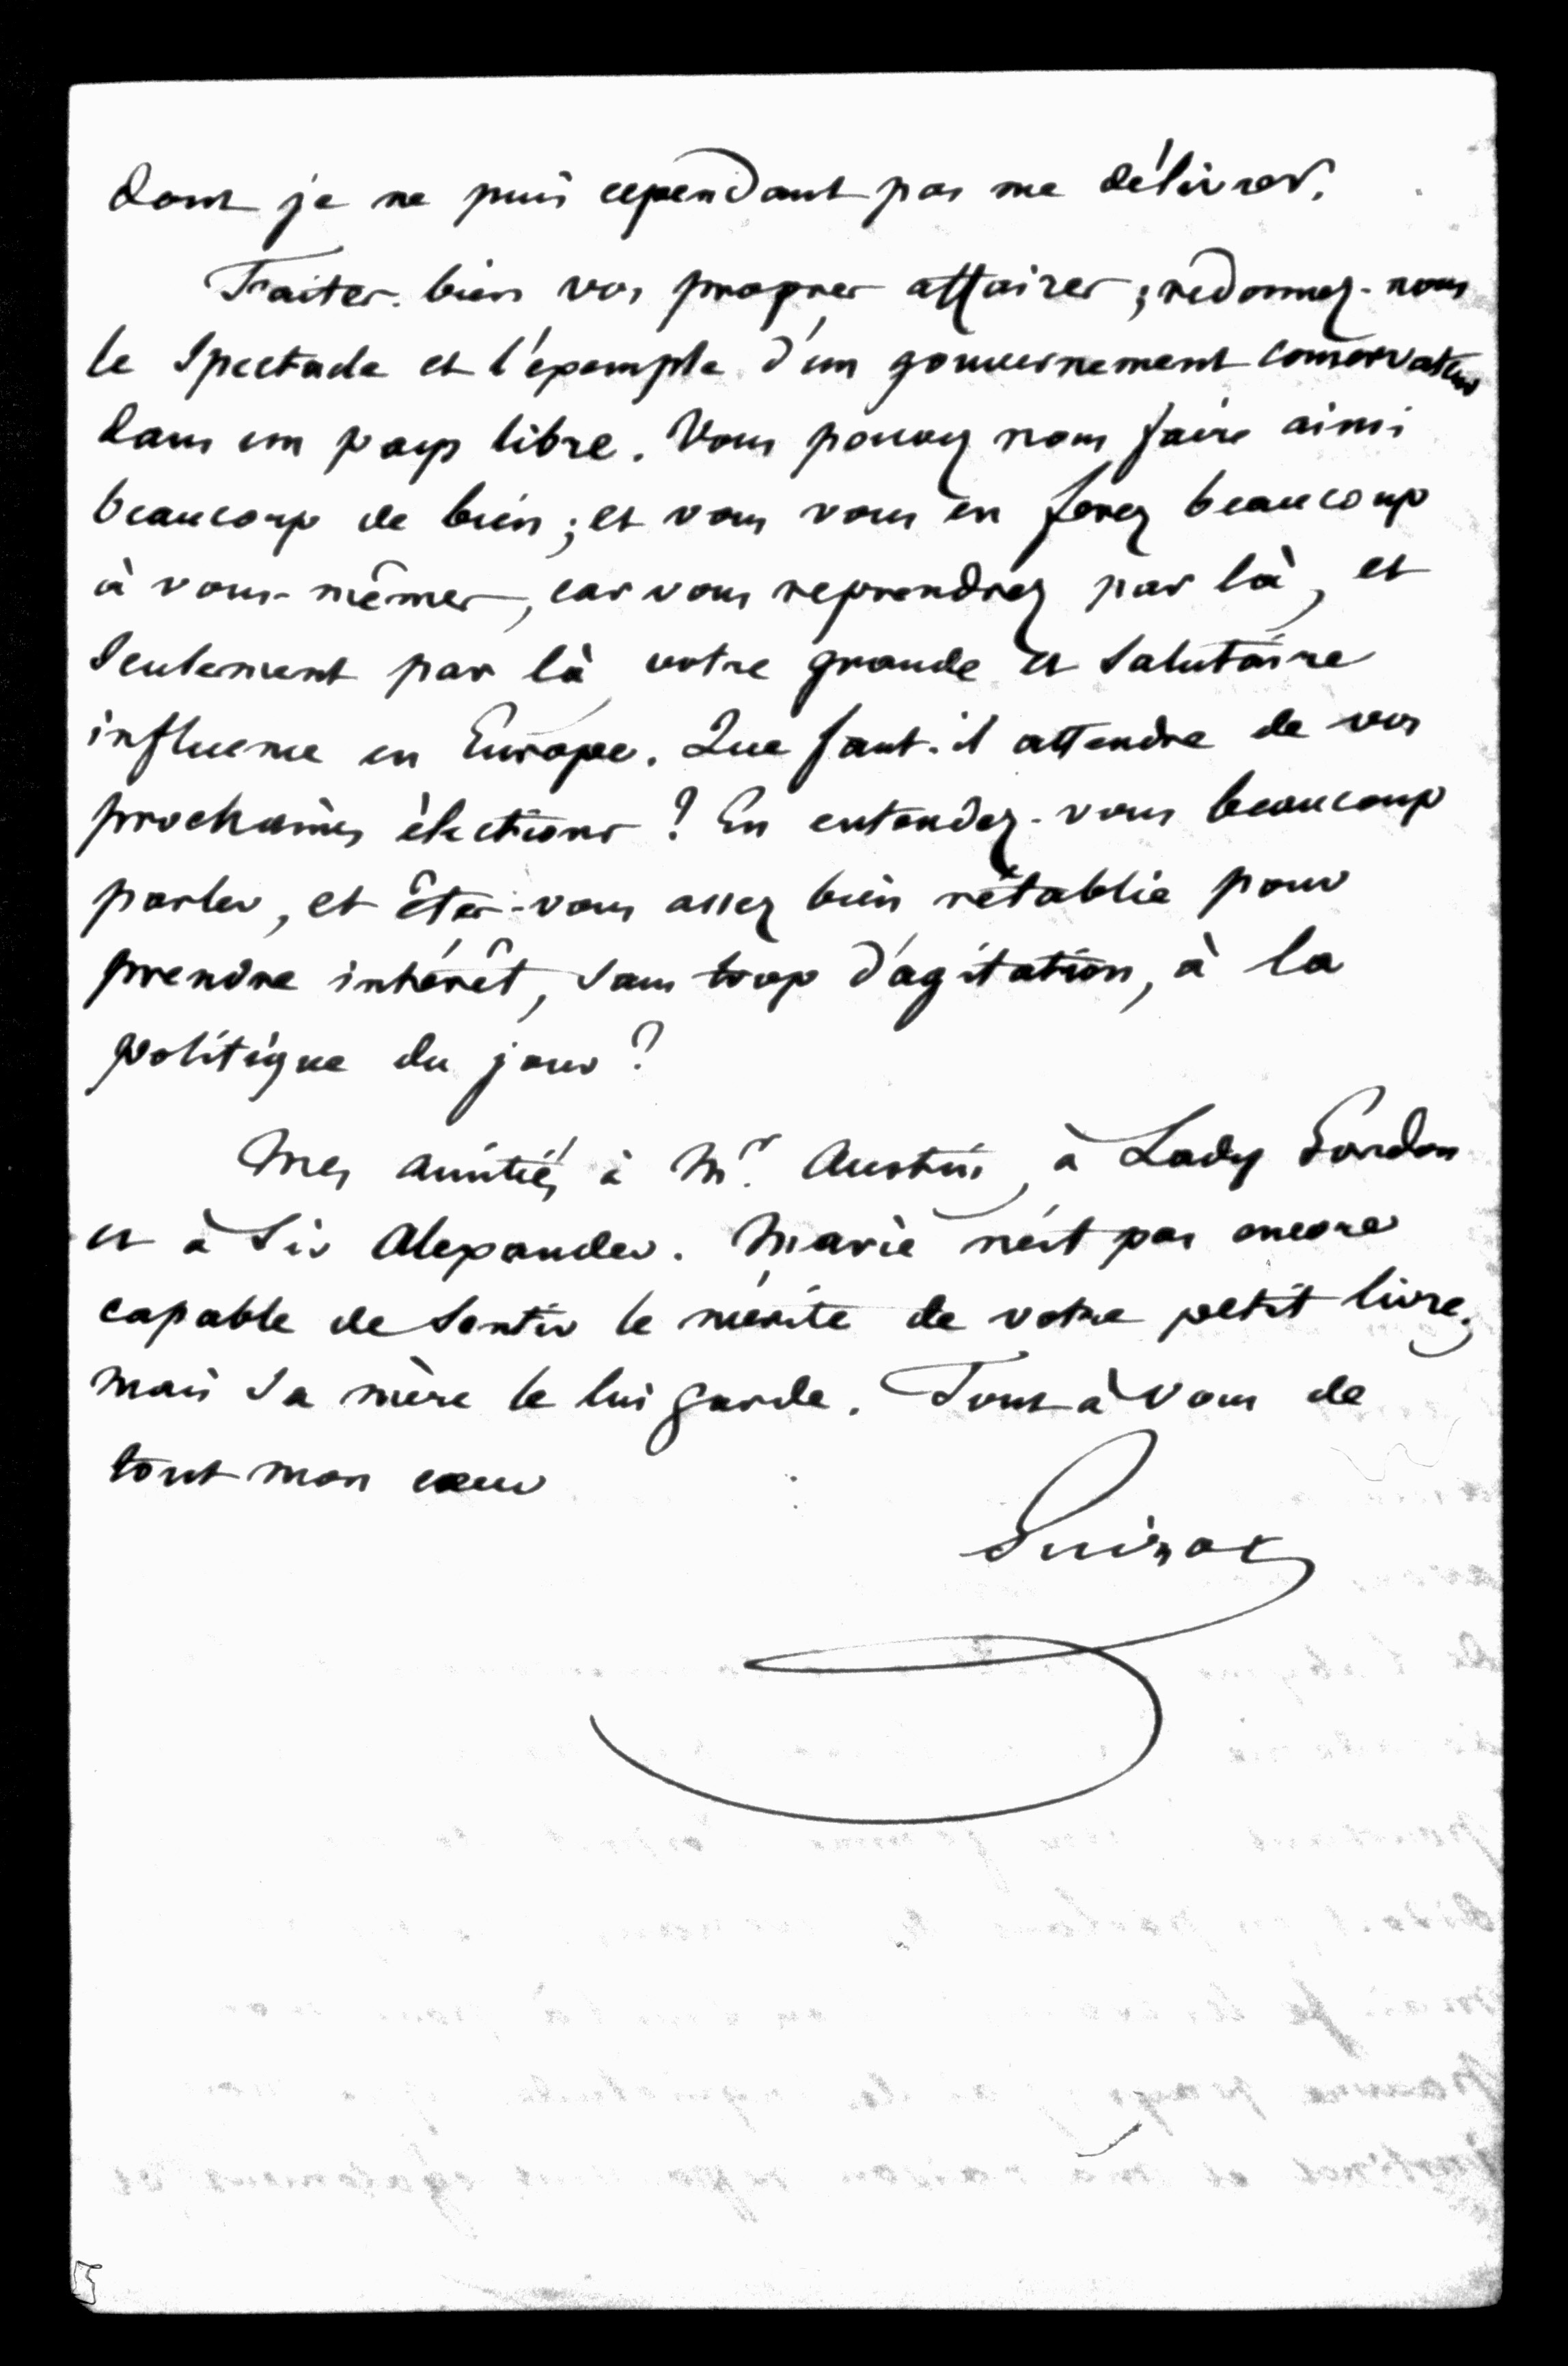 dont je ne puis cependant pas me délivrer.
Traitez bien vos propres affaires ; redonnez-nous
le Spectacle et l'exemple d'un gouvernement conservateur
dans un pays libre. Vous pouvez nous faire ainsi
beaucoup de bien ; et vous vous en ferez beaucoup
à vous-mêmes, car vous reprendrez par là, et
Seulement par là, votre grande et Salutaire
influence en Europe. Que faut-il attendre de vos
prochaines élections ? En entendez-vous beaucoup
parler, et êtes-vous assez bien rétablie pour
prendre intérêt, sans trop d'agitation, à la
politique du jour ?
Mes amitiés à Mr. Austin, à Lady Gordon
et à Sir Alexander. Marie n'est pas encore
capable de Sentir le mérite de votre petit livre ;
mais sa mère le lui garde. Tout à vous de
tout mon cœur
Guizot